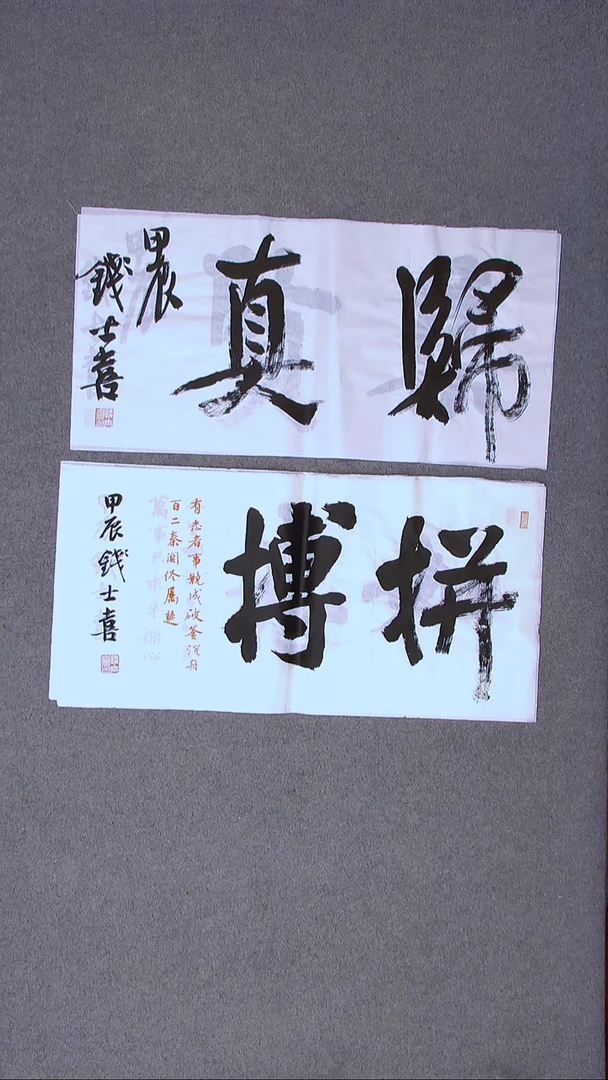 歸真
甲辰
錢士喜
拼搏
有志者事竟成破釜沉舟
百二秦關終屬楚
甲辰錢士喜